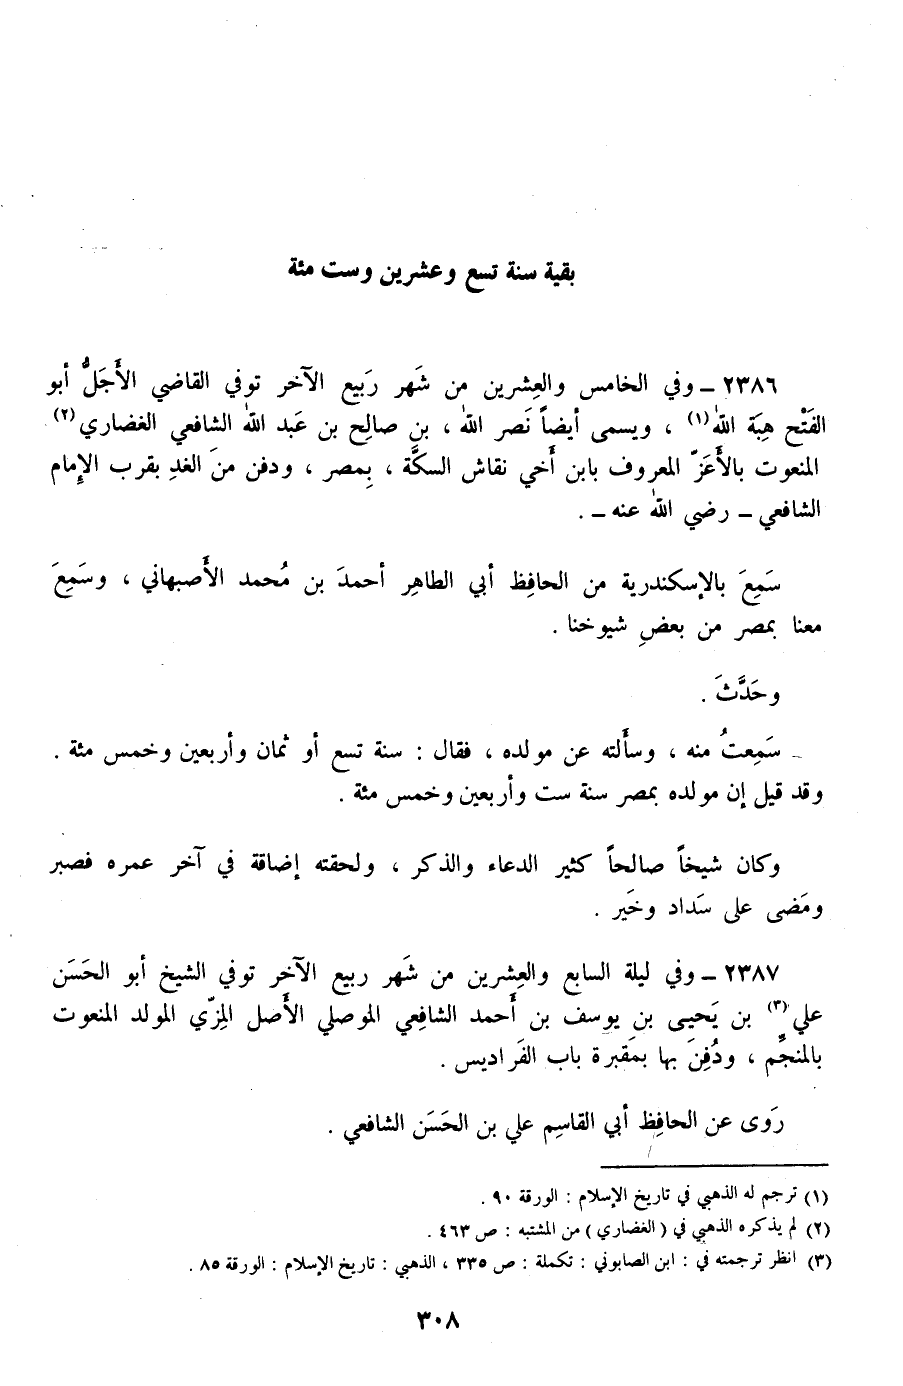 بقية سنة تسع وعشرين وست مئة
٢٣٨٦ ـ وفي الخامس والعِشرين من شَهر رَبيع الآخر توفي القاضي الأَجَلُّ أبو
الفَتْح هِبَة الله(١) ، ويسمى أيضاً نَصر الله ، بن صالِح بن عَبد الله الشافعي الغضاري(٢)
المنعوت بالأَعَزّ المعروف بابن أَخي نقاش السكَّة ، بِمصر ، ودفن منَ الغدِ بقرب الإِمام
الشافعي ـ رضي الله عنه ـ .
سَمِعَ بالإسكندرية من الحافِظ أبي الطاهِر أحمدَ بن مُحمد الأَصبهاني ، وسَمِعَ
معنا بمصر من بعضِ شيوخنا .
وحَدَّثَ .
ـ سَمِعتُ منه ، وسأَلته عن مولده ، فقال : سنة تسع أو ثمان وأربعين وخمس مئة .
وقد قيل إن مولده بمصر سنة ست وأربعين وخمس مئة .
وكان شيخاً صالحاً كثير الدعاء والذكر ، ولحقته إضاقة في آخر عمره فصبر
ومَضى على سَداد وخَير .
٢٣٨٧ ـ وفي ليلة السابع والعِشرين من شَهر ربيع الآخر توفي الشيخ أبو الحَسَن
علي(٣) بن يَحيى بن يوسف بن أَحمد الشافِعي الموصلي الأَصل المِزّي المولد المنعوت
بالمنجِّم ، ودُفِنَ بها بمَقبرة باب الفَراديس .
رَوى عن الحافِظ أبي القاسِم علي بن الحَسَن الشافعي .
(١) ترجم له الذهبي في تاريخ الإسلام : الورقة ٩٠ .
(٢) لم يذكره الذهبي في ( الغضاري ) من المشتبه : ص ٤٦٣ .
(٣) انظر ترجمته في : ابن الصابوني : تكملة : ص ٣٣٥ ، الذهبي : تاريخ الإسلام : الورقة ٨٥ .
٣٠٨